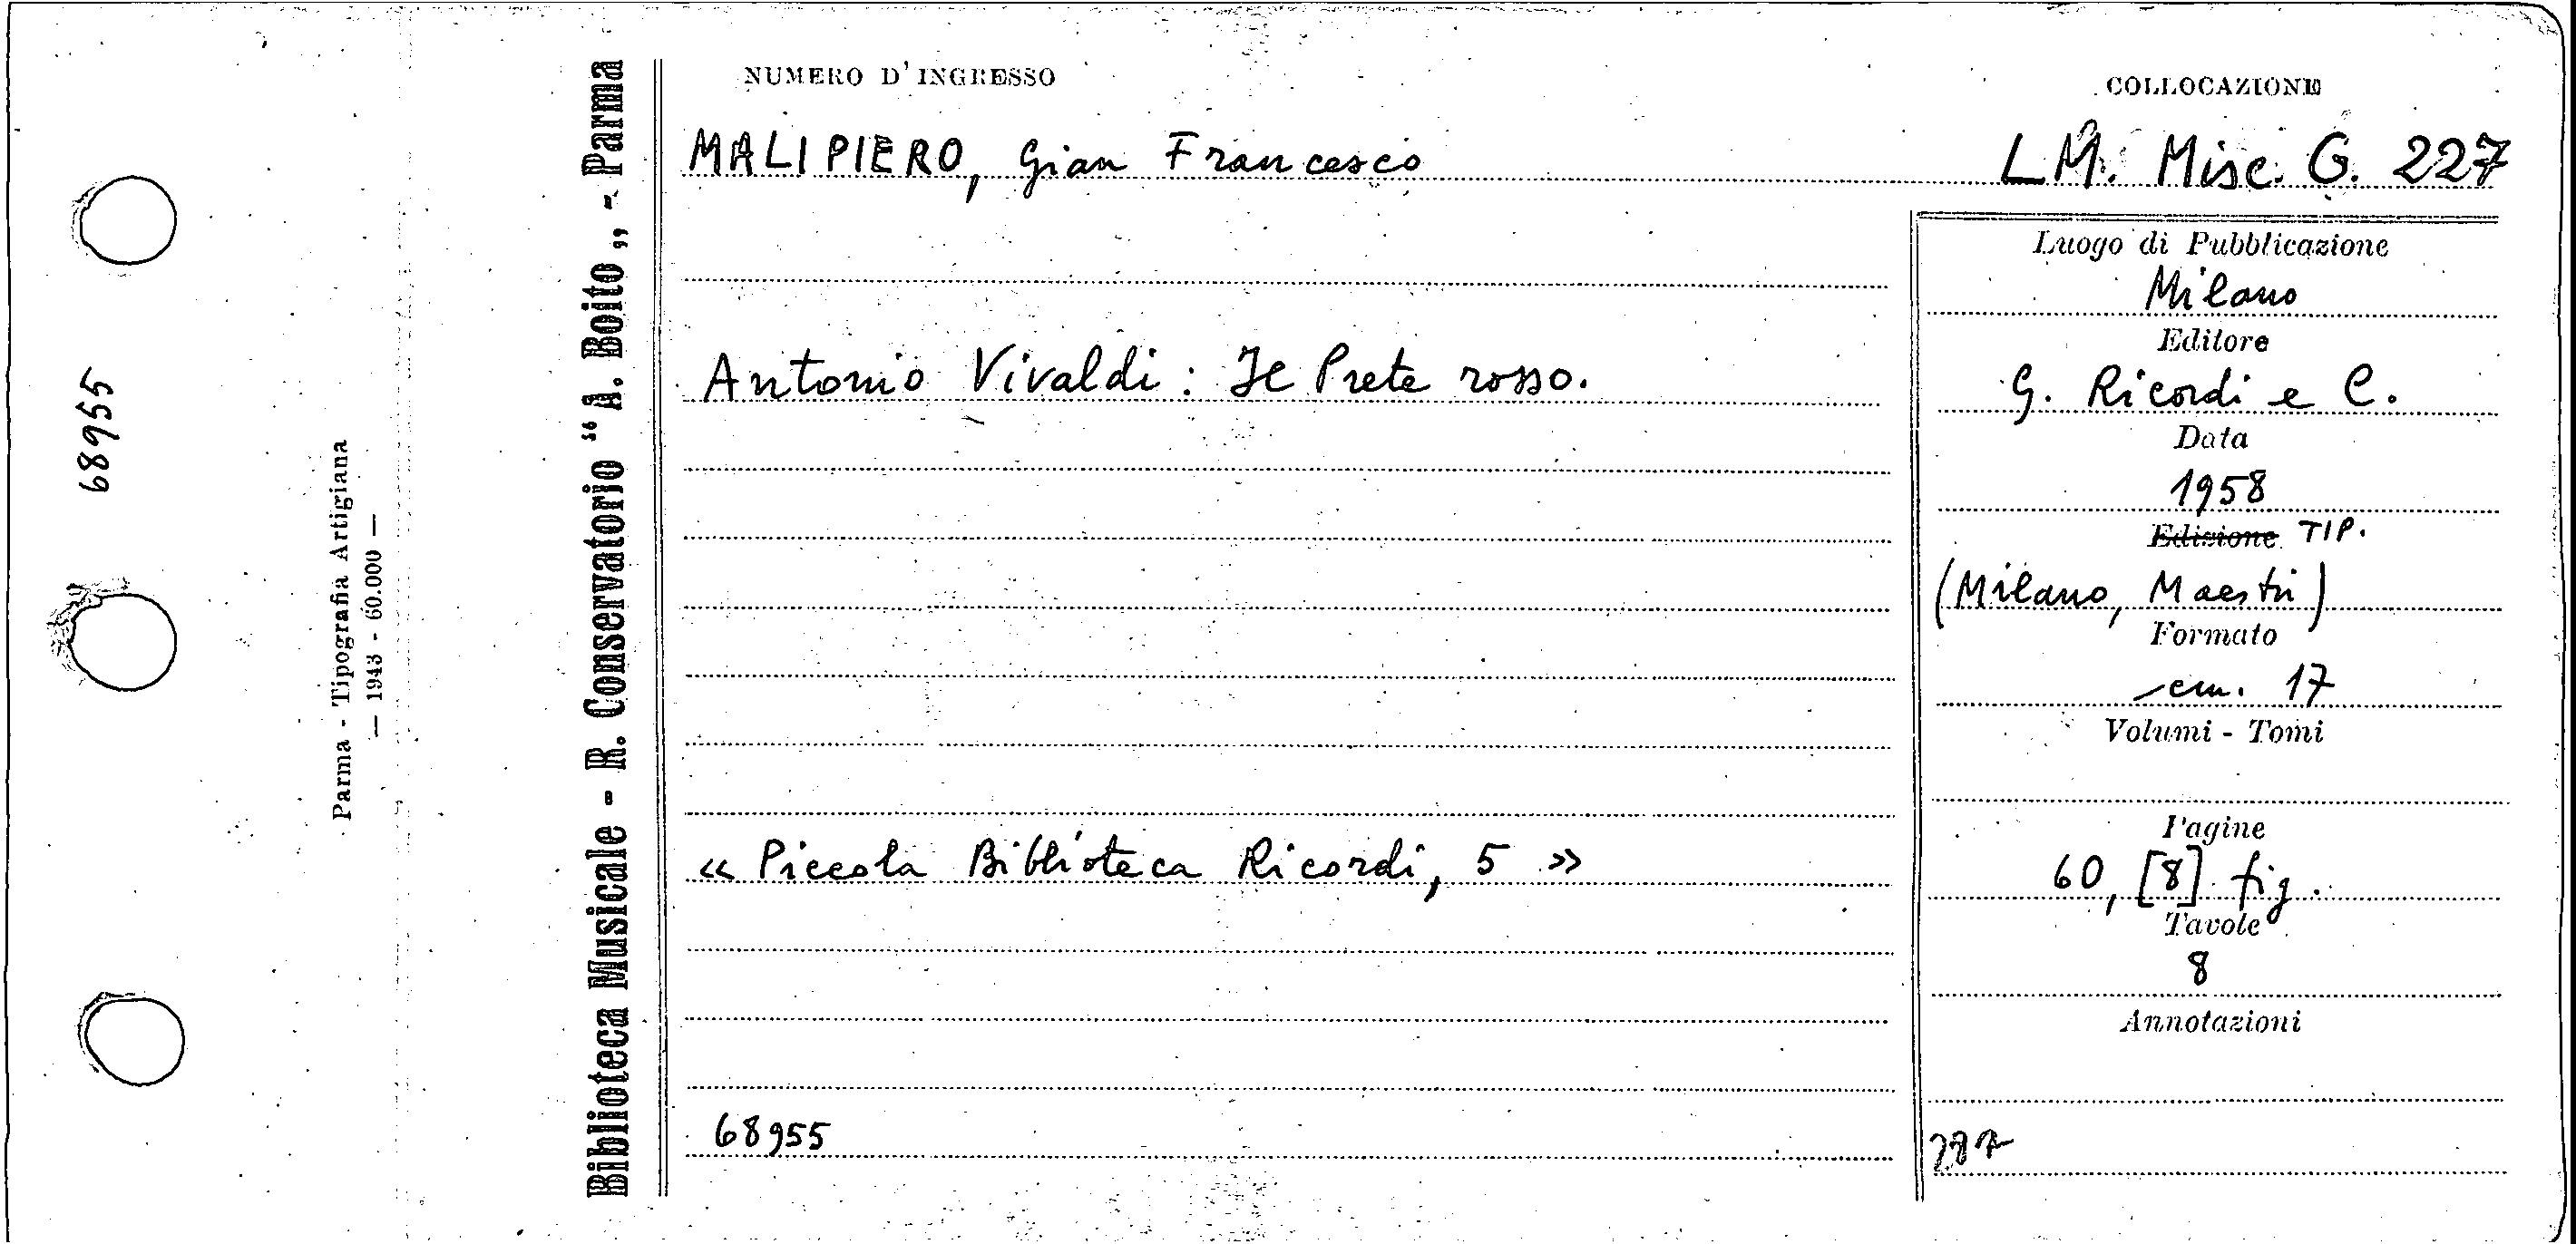 68955
Parma - Tipografia Artigiana
— 1943 - 60.000 —
Biblioteca Musicale - R. Conservatorio “A. Boito„ - Parma
NUMERO D'INGRESSO
COLLOCAZIONE
MALIPIERO, Gian Francesco
L.M. Misc. G. 227
Antonio Vivaldi: Il Prete rosso.
« Piccola Biblioteca Ricordi, 5 »
68955
Luogo di Pubblicazione
Milano
Editore
G. Ricordi e C.
Data
1958
Edizione TIP.
(Milano, Maestri)
Formato
cm. 17
Volumi - Tomi
Pagine
60, [8] fig.
Tavole
8
Annotazioni